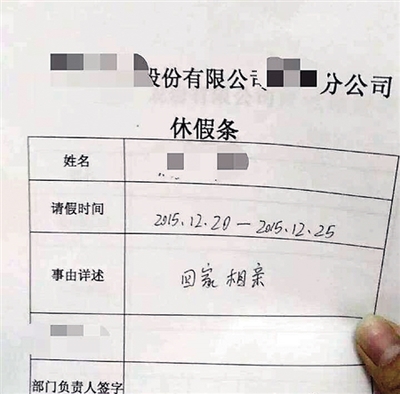 股份有限公司 分公司
休假条
姓名
请假时间 2015.12.20—2015.12.25
事由详述 回家相亲
部门负责人签字